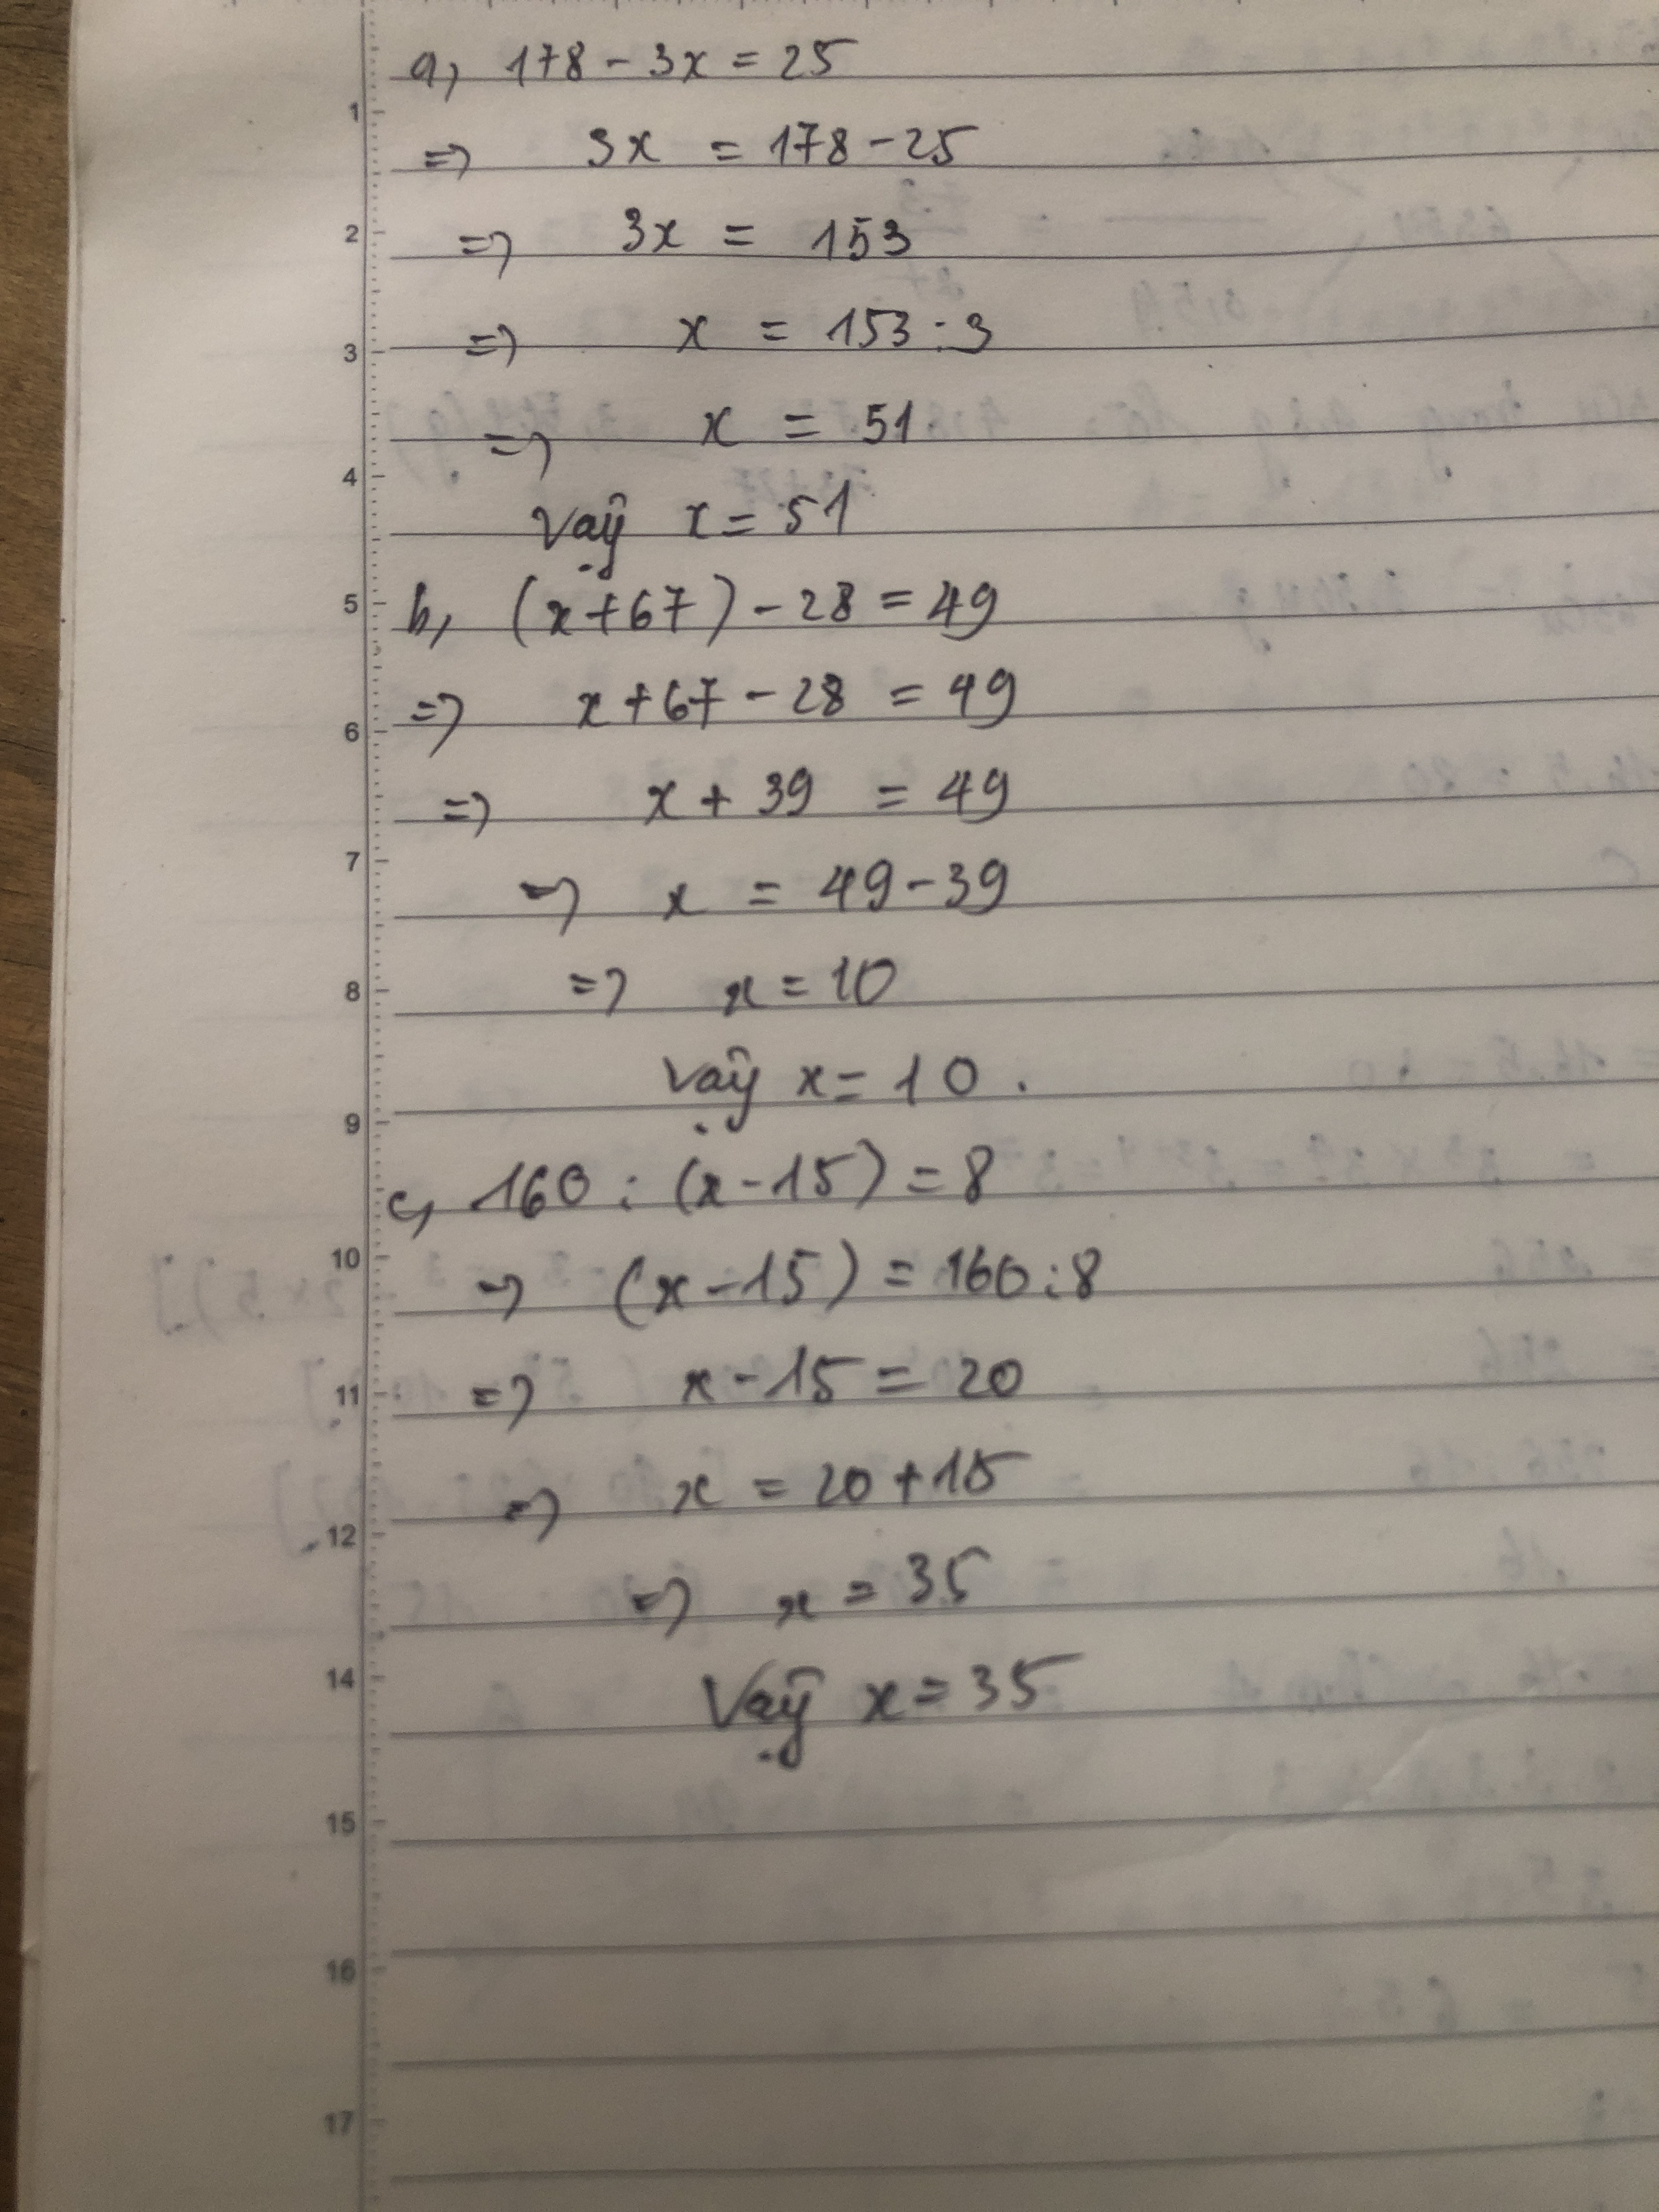 a, 178 - 3x = 25
1
=> 3x = 178 - 25
2
=> 3x = 153
3
=> x = 153 : 3
=> x = 51
4
Vậy x = 51
5
b, (x + 67) - 28 = 49
6
=> x + 67 - 28 = 49
=> x + 39 = 49
7
=> x = 49 - 39
8
=> x = 10
Vậy x = 10.
9
c, 160 : (x - 15) = 8
10
=> (x - 15) = 160 : 8
11
=> x - 15 = 20
12
=> x = 20 + 15
=> x = 35
14
Vậy x = 35
15
16
17